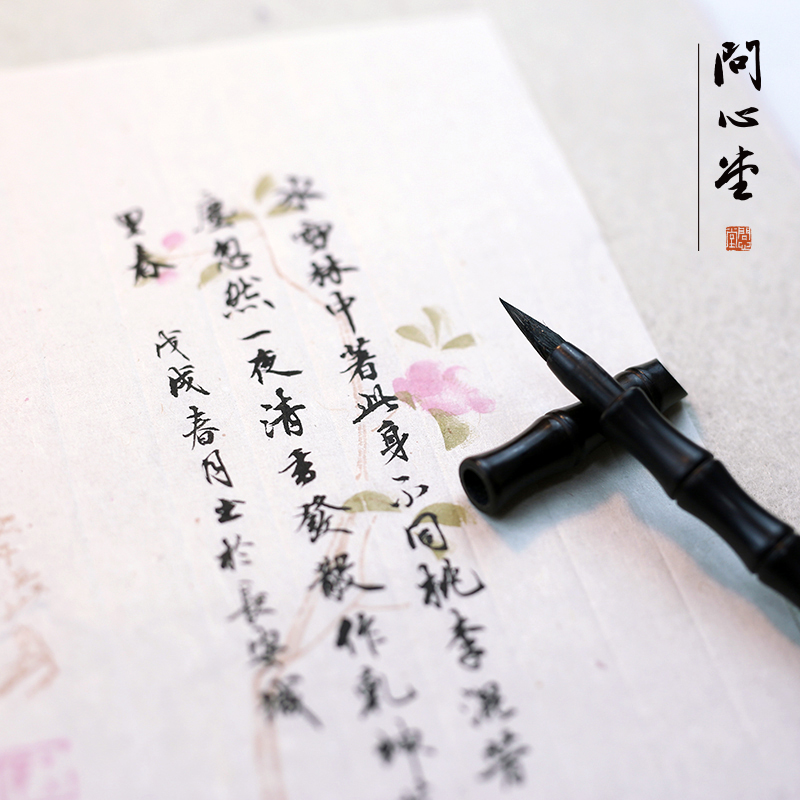 問心堂
氷雪林中著此身不同桃李混芳
塵忽然一夜清香發散作乾坤
里春
戊戌春月书於長安城